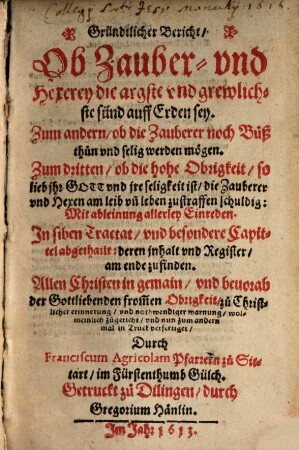 Colleg: Soc: Jesu Monachij 1616.
Gründtlicher Bericht/
Ob Zauber- vnd
Hexerey die argste vnd grewlich-
ste sünd auff Erden sey.
Zum andern/ ob die Zauberer noch Büß
thün vnd selig werden mögen.
Zum dritten/ ob die hohe Obrigkeit/ so
lieb jhr GOTT vnd jre seligkeit ist/ die Zauberer
vnd Hexen am leib vñ leben zustraffen schuldig:
Mit ableinung allerley Einreden.
In siben Tractat/ vnd besondere Capit-
tel abgethailt: deren inhalt vnd Register/
am ende zufinden.
Allen Christen in gemain/ vnd beuorab
der Gottliebenden from̃en Obrigkeit/ zů Christ-
licher erinnerung/ vnd notwendiger warnung/ wol-
meinlich zůgericht/ vnd nun zum andern
mal in Truck verfertiget/
Durch
Franciscum Agricolam Pfarrern zů Sit-
tart/ im Fürstenthumb Gülch.
Getruckt zů Dilingen/ durch
Gregorium Hänlin.
Im Jahr 1613.